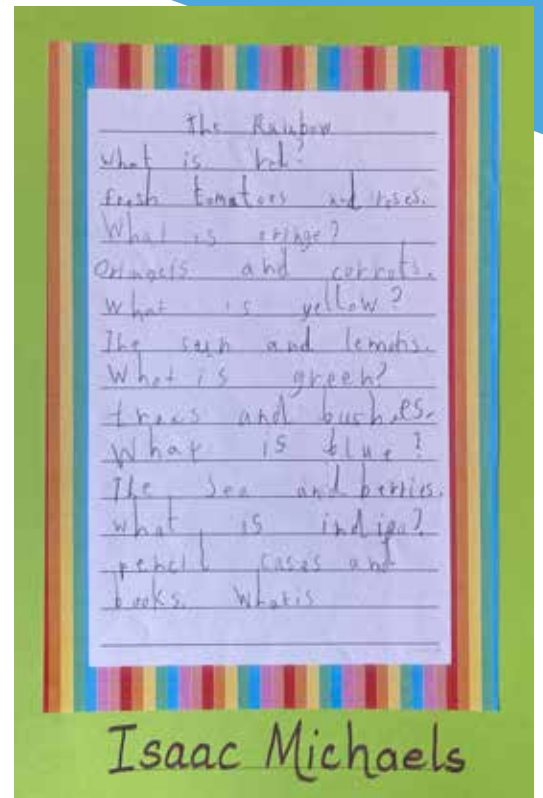 The Rainbow
What is red?
fresh tomatoes and roses.
What is oringe?
Oringels and corrots.
What is yellow?
The sun and lemons.
What is green?
trees and bushes.
What is blue?
The Sea and berries.
what is indigo?
pencil cases and
books. What is
Isaac Michaels